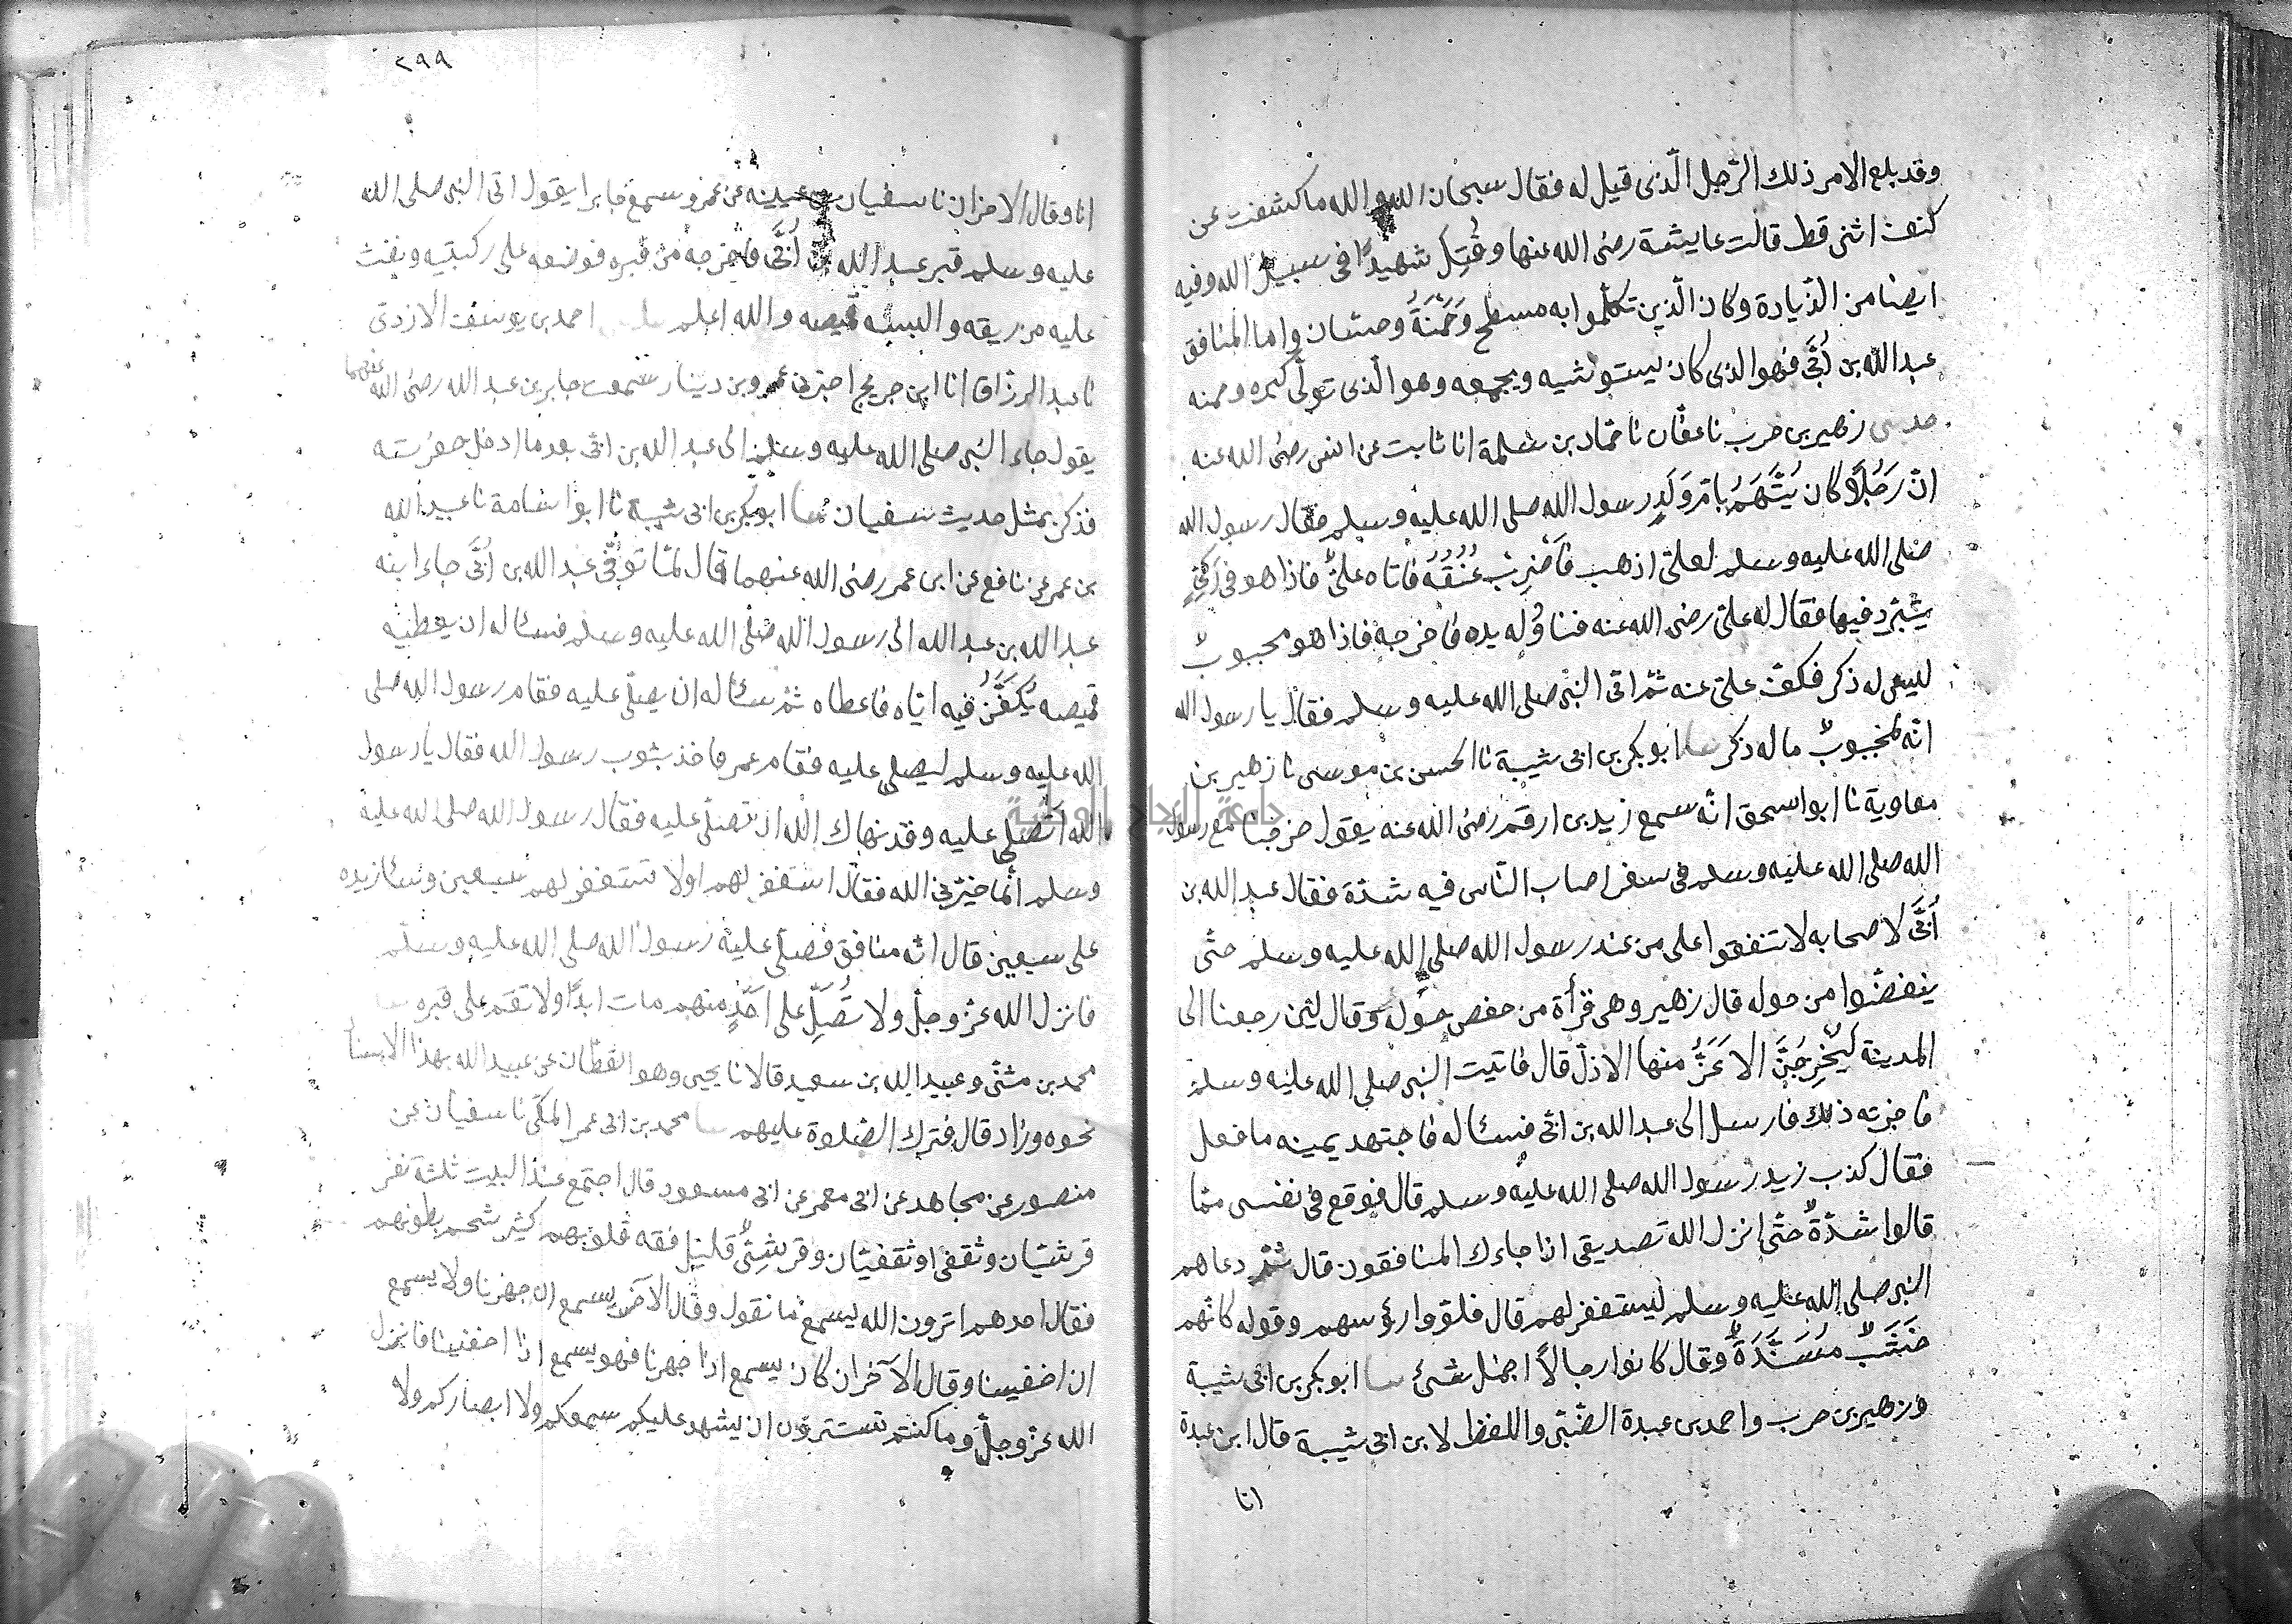 وقد بلغ الامر ذلك الرّجل الّذى قيل له فقال سبحان الله والله ما كشفت عن
كنف انثى قط قالت عايشة رضى الله عنها وقُتِل شهيدًا فى سبيل الله وفيه
ايضا من الزّيادة وكان الّذين تكلّموا به مسطح وَحَمْنَةُ وحسّان واما المنافق
عبد الله بن اُبَّى فهو الذى كان يستوشيه ويجمعه وهو الّذى تولّى كبره وحمنه
حدثنى زهير بن حرب نا عفّان نا حمّاد بن سلمة انا ثابت عن انس رضى الله عنه
انّ رَجُلًا كان يُتَّهَمُ بامّ وَلَدِ رسول الله صلى الله عليه وسلم فقال رسول الله
صلى الله عليه وسلم لعلى اذهب فَاضْرِبْ عُنُقَهُ فاتاه علىٌّ فاذا هو فى رَكِىٍّ
يتبرّد فيها فقال له على رضى الله عنه فناوُله يده فاخرجه فاذا هو مجبوبٌ
ليس له ذكر فكفّ على عنه ثم اتى النّبى صلى الله عليه وسلم فقال يا رسول الله
انّه لمجبوبٌ ماله ذكر حدثنا ابو بكر بن ابى شيبة نا الحسن بن موسى نا زهير بن
معاوية نا ابو اسحق انّه سمع زيد بن ارقم رضى الله عنه يقول خرجنا مع رسول
الله صلى الله عليه وسلم فى سفر اصاب النّاس فيه شدّة فقال عبد الله بن
اُبَّى لاصحابه لا تنفقوا على من عند رسول الله صلى الله عليه وسلم حتّى
ينفضّوا من حوله قال زهير وهى قرأة من خفض حوله وقال لئن رجعنا الى
المدينة لَيُخْرِجَنَّ الاعَزُّ منها الاذلّ قال فاتيت النبى صلى الله عليه وسلم
فاخبرته ذلك فارسل الى عبد الله بن ابّى فسئاله فاجتهد يمينه ما فعل
فقال كذب زيد رسول الله صلى الله عليه وسلم قال فوقع فى نفسى ممّا
قالوا شدّةٌ حتّى انزل الله تصديقى اذا جاءك المنافقون قال ثمّ دعاهم
النبى صلى الله عليه وسلم ليستغفر لهم قال فلوّوا رؤسهم وقوله كانّهم
خُشُبٌ مُسَنَّدَةٌ وقال كانوا رجالًا اجمل شئ حدثنا ابو بكر بن ابى شيبة
وزهير بن حرب واحمد بن عبدة الضّبّى واللفظ لابن ابى شيبة قال ابن عبدة
انا
٢٩٩
انا وقال الاخران نا سفيان بن عيينه عن عمرو سمع جابرا يقول اتى النبى صلى الله
عليه وسلم قبر عبد الله بن اُبَّى فاخرجه من قبره فوضعه على ركبتيه ونفث
عليه من ريقه والبسه قميصه والله اعلم احمد بن يوسف الازدى
نا عبد الرزاق انا ابن جريج اخبرنى عمرو بن دينار سمعت جابر بن عبد الله رضى الله عنهما
يقول جاء النبى صلى الله عليه وسلم الى عبد الله بن ابى بعد ما ادخل حفرته
فذكر بمثل حديث سفيان حدثنا ابو بكر بن ابى شيبة نا ابو اسامة نا عبيد الله
بن عمر عن نافع عن ابن عمر رضى الله عنهما قال لمّا توفّى عبد الله بن اُبَّى جاء ابنه
عبد الله بن عبد الله الى رسول الله صلى الله عليه وسلم فسئاله ان يعطيه
قميصه يُكَفَّنُ فيه اباه فاعطاه ثم سئاله ان يصلّى عليه فقام رسول الله صلى
الله عليه وسلم ليصلى عليه فقام عمر فاخذ بثوب رسول الله فقال يا رسول
الله اتصلى عليه وقد نهاك الله ان تصلّى عليه فقال رسول الله صلى الله عليه
وسلم انّما خيّرنى الله فقال استغفر لهم اولا تستغفر لهم سبعين وسئازيده
على سبعين قال انّه منافق فصلّى عليه رسول الله صلى الله عليه وسلّم
فانزل الله عزّ وجلّ ولا تُصَلِّ على اَحَدٍ منهم مات ابدًا ولا تقم على قبره حدثنا
محمد بن مثنّى وعبيد الله بن سعيد قالا نا يحيى وهو القطان عن عبيد الله بهذا الاسنا
نحوه وزاد قال فترك الصّلوة عليهم حدثنا محمد بن ابى عمر المكّى نا سفيان عن
منصور عن مجاهد عن ابى معمر عن ابى مسعود قال اجتمع عند البيت ثلثة نفر
قرشيّان وثقفى او ثقفيّان وقرشِىٌّ قليل فقه قلوبهم كثير شحم بطونهم
فقال احدهم اترون الله يسمع ما نقول وقال الآخر يسمع ان جهرنا ولا يسمع
ان اخفينا وقال الآخر ان كان يسمع اذا جهرنا فهو يسمع اذا اخفينا فانزل
الله عزّ وجلّ وما كنتم تستترون ان يشهد عليكم سمعكم ولا ابصاركم ولا
جامعة النجاح الوطنية